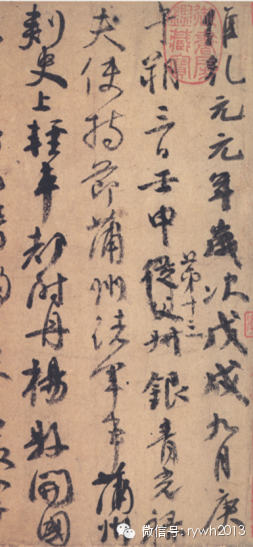 維乾元元年歲次戊戌九月庚
午朔三日壬申從父第十三叔銀青光祿
夫使持節蒲州諸軍事蒲州
刺史上輕車都尉丹楊縣開國
御書房鑑藏寶
微信号: rywh2013